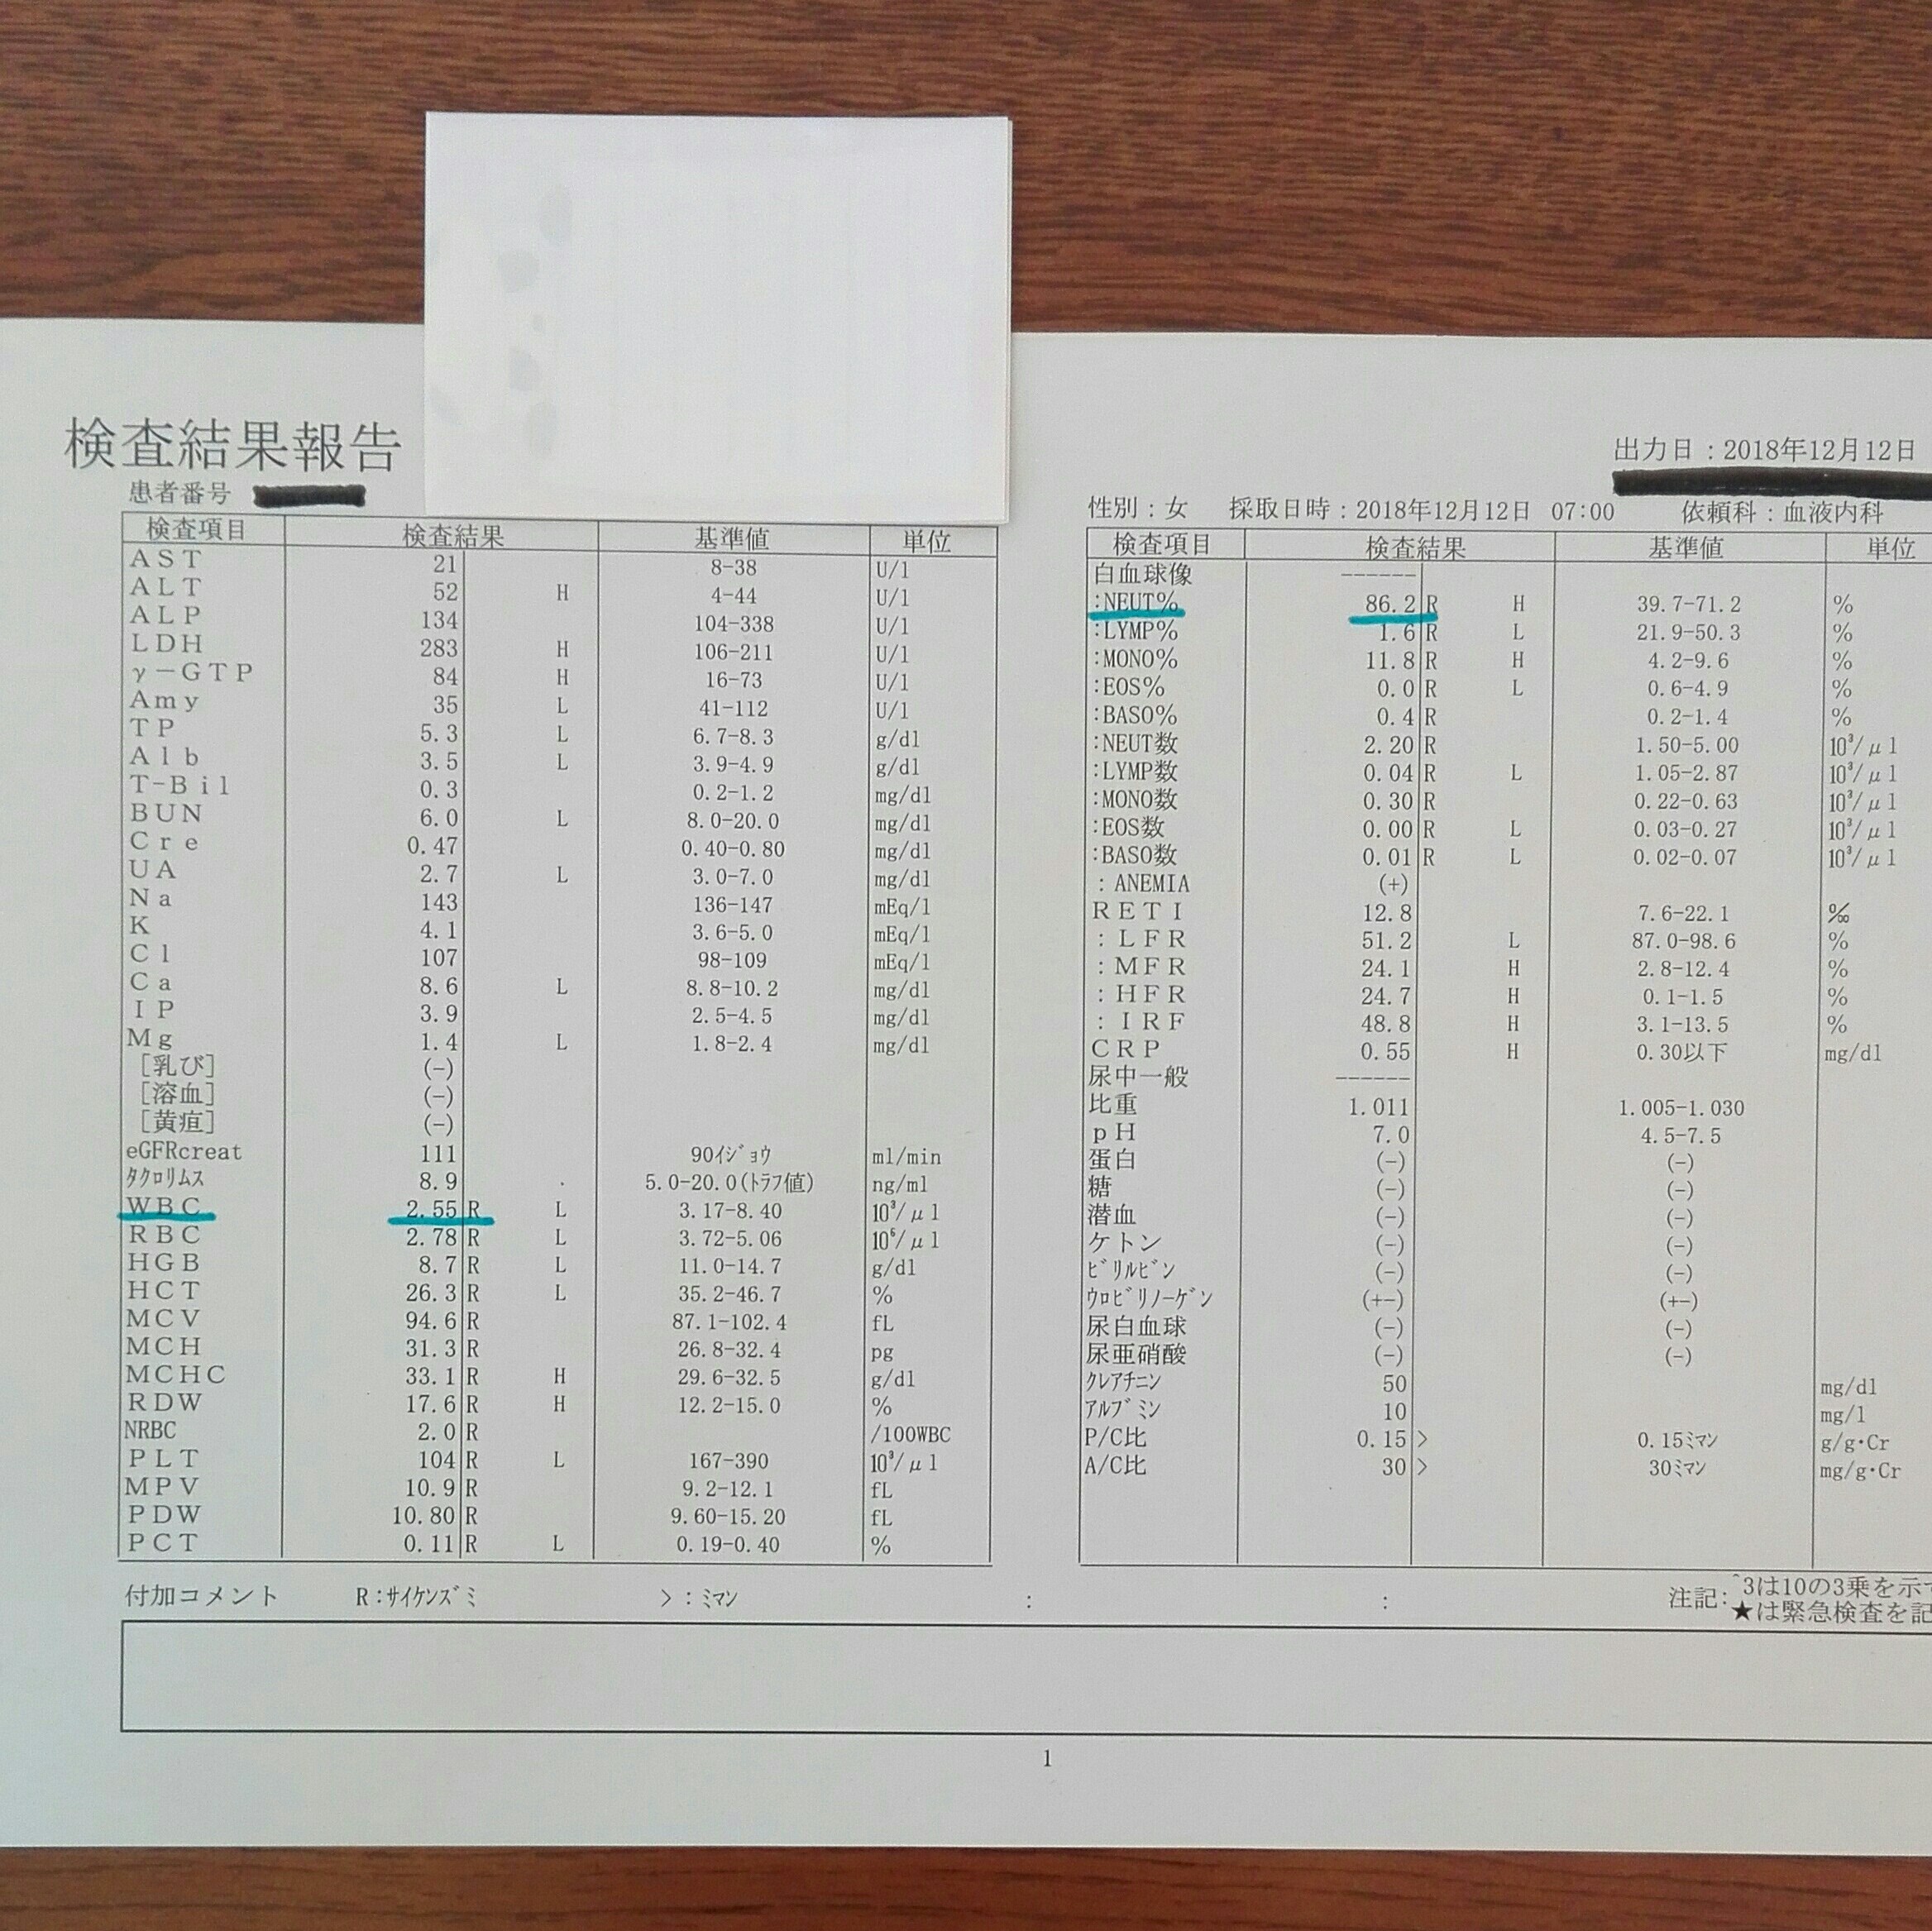 検査結果報告
出力日：2018年12月12日
患者番号
性別：女 採取日時：2018年12月12日 07:00 依頼科：血液内科
検査項目 検査結果 基準値 単位
AST 21 8-38 U/l
ALT 52 H 4-44 U/l
ALP 134 104-338 U/l
LDH 283 H 106-211 U/l
γ-GTP 84 H 16-73 U/l
Amy 35 L 41-112 U/l
TP 5.3 L 6.7-8.3 g/dl
Alb 3.5 L 3.9-4.9 g/dl
T-Bil 0.3 0.2-1.2 mg/dl
BUN 6.0 L 8.0-20.0 mg/dl
Cre 0.47 0.40-0.80 mg/dl
UA 2.7 L 3.0-7.0 mg/dl
Na 143 136-147 mEq/l
K 4.1 3.6-5.0 mEq/l
Cl 107 98-109 mEq/l
Ca 8.6 L 8.8-10.2 mg/dl
IP 3.9 2.5-4.5 mg/dl
Mg 1.4 L 1.8-2.4 mg/dl
[乳び] (-)
[溶血] (-)
[黄疸] (-)
eGFRcreat 111 90ｲｼﾞｮｳ ml/min
ﾀｸﾛﾘﾑｽ 8.9 5.0-20.0(ﾄﾗﾌ値) ng/ml
WBC 2.55 R L 3.17-8.40 10³/μl
RBC 2.78 R L 3.72-5.06 10⁶/μl
HGB 8.7 R L 11.0-14.7 g/dl
HCT 26.3 R L 35.2-46.7 %
MCV 94.6 R 87.1-102.4 fL
MCH 31.3 R 26.8-32.4 pg
MCHC 33.1 R H 29.6-32.5 g/dl
RDW 17.6 R H 12.2-15.0 %
NRBC 2.0 R /100WBC
PLT 104 R L 167-390 10³/μl
MPV 10.9 R 9.2-12.1 fL
PDW 10.80 R 9.60-15.20 fL
PCT 0.11 R L 0.19-0.40 %
検査項目 検査結果 基準値 単位
白血球像 ------
:NEUT% 86.2 R H 39.7-71.2 %
:LYMP% 1.6 R L 21.9-50.3 %
:MONO% 11.8 R H 4.2-9.6 %
:EOS% 0.0 R L 0.6-4.9 %
:BASO% 0.4 R 0.2-1.4 %
:NEUT数 2.20 R 1.50-5.00 10³/μl
:LYMP数 0.04 R L 1.05-2.87 10³/μl
:MONO数 0.30 R 0.22-0.63 10³/μl
:EOS数 0.00 R L 0.03-0.27 10³/μl
:BASO数 0.01 R L 0.02-0.07 10³/μl
:ANEMIA (+)
RETI 12.8 7.6-22.1 ‰
:LFR 51.2 L 87.0-98.6 %
:MFR 24.1 H 2.8-12.4 %
:HFR 24.7 H 0.1-1.5 %
:IRF 48.8 H 3.1-13.5 %
CRP 0.55 H 0.30以下 mg/dl
尿中一般 ------
比重 1.011 1.005-1.030
pH 7.0 4.5-7.5
蛋白 (-) (-)
糖 (-) (-)
潜血 (-) (-)
ケトン (-) (-)
ﾋﾞﾘﾙﾋﾞﾝ (-) (-)
ｳﾛﾋﾞﾘﾉｰｹﾞﾝ (+-) (+-)
尿白血球 (-) (-)
尿亜硝酸 (-) (-)
ｸﾚｱﾁﾆﾝ 50 mg/dl
ｱﾙﾌﾞﾐﾝ 10 mg/l
P/C比 0.15 > 0.15ﾐﾏﾝ g/g・Cr
A/C比 30 > 30ﾐﾏﾝ mg/g・Cr
付加コメント R:ｻｲｹﾝｽﾞﾐ >:ﾐﾏﾝ : :
注記: ^3は10の3乗を示
★は緊急検査を記
1